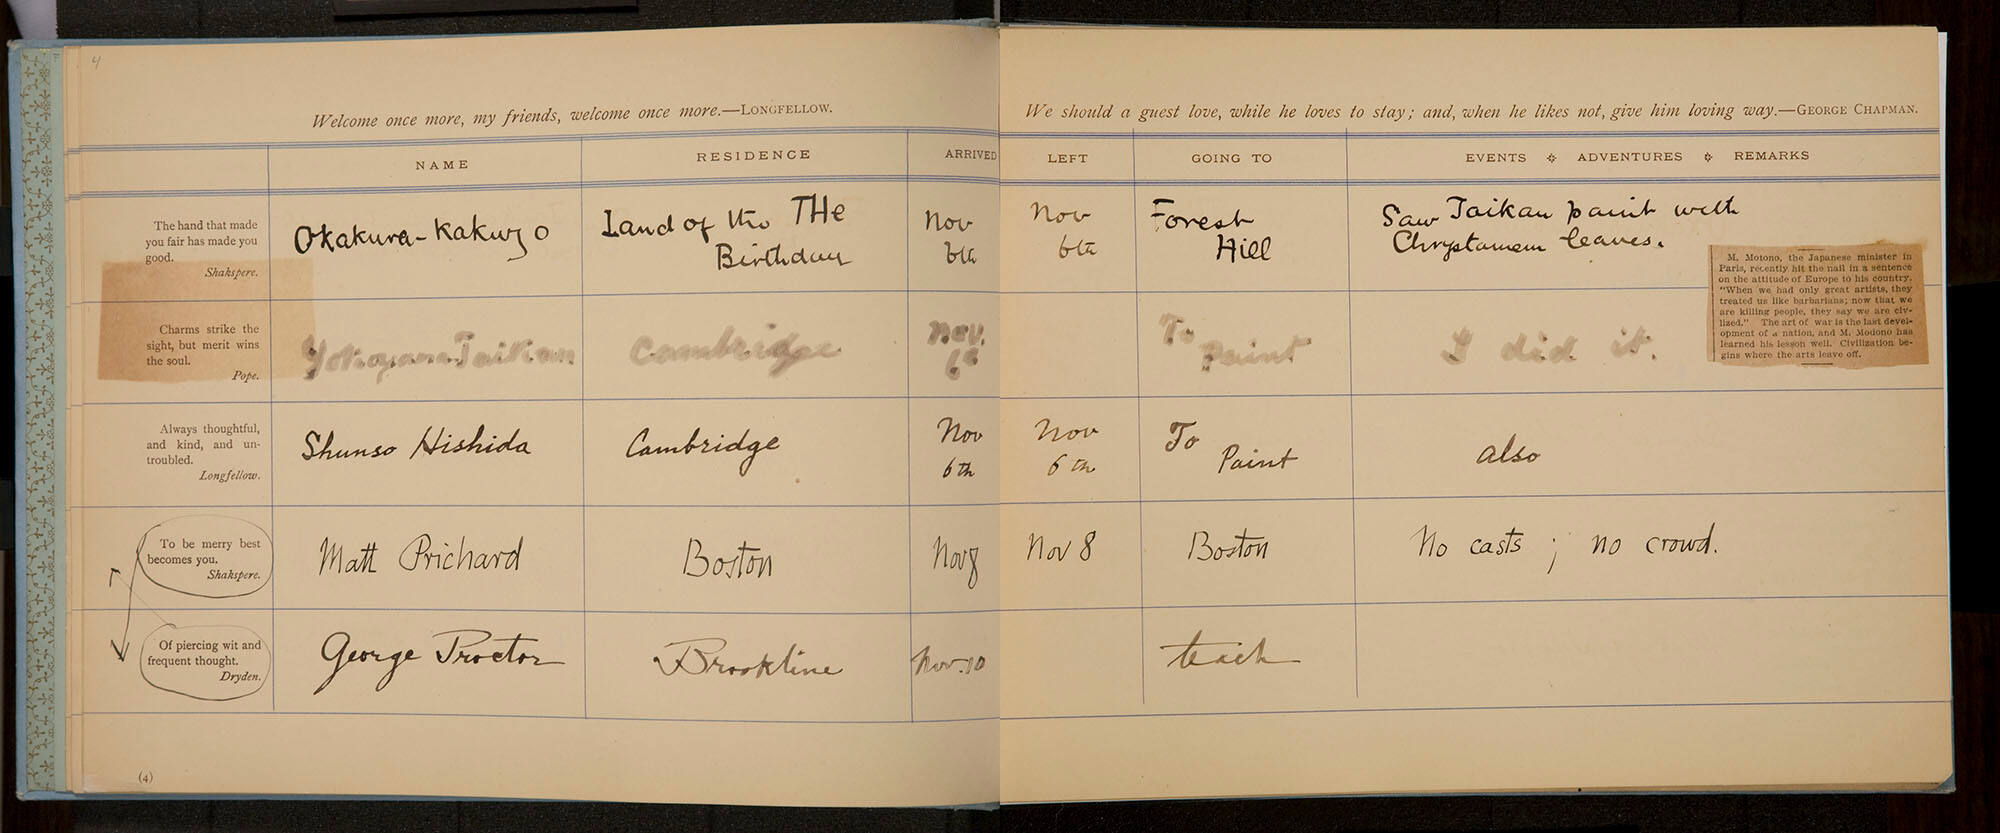 4
Welcome once more, my friends, welcome once more.—LONGFELLOW.
NAME
RESIDENCE
ARRIVED
The hand that made
you fair has made you
good.
Shakspere.
Okakura-Kakuzo
Land of the THe
Birthday
Nov
6th
Charms strike the
sight, but merit wins
the soul.
Pope.
Yokoyama Taikan
Cambridge
Nov.
6th
Always thoughtful,
and kind, and un-
troubled.
Longfellow.
Shunso Hishida
Cambridge
Nov
6th
To be merry best
becomes you.
Shakspere.
Matt Prichard
Boston
Nov 8
Of piercing wit and
frequent thought.
Dryden.
George Proctor
Brookline
Nov. 10
(4)
We should a guest love, while he loves to stay; and, when he likes not, give him loving way.—GEORGE CHAPMAN.
LEFT
GOING TO
EVENTS ADVENTURES REMARKS
Nov
6th
Forest
Hill
Saw Taikan paint with
Chrystamem leaves.
M. Motono, the Japanese minister in
Paris, recently hit the nail in a sentence
on the attitude of Europe to his country.
"When we had only great artists, they
treated us like barbarians; now that we
are killing people, they say we are civ-
lized." The art of war is the last devel-
opment of a nation, and M. Modono has
learned his lesson well. Civilization be-
gins where the arts leave off.
To
paint
I did it.
Nov
6th
To
Paint
also
Nov 8
Boston
No casts ; no crowd.
teach